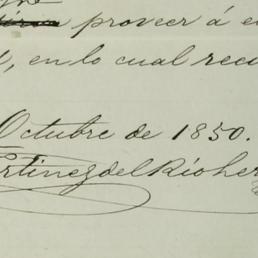 proveer á e
, en lo cual rec
Octubre de 1850.
rtinez del Rio her